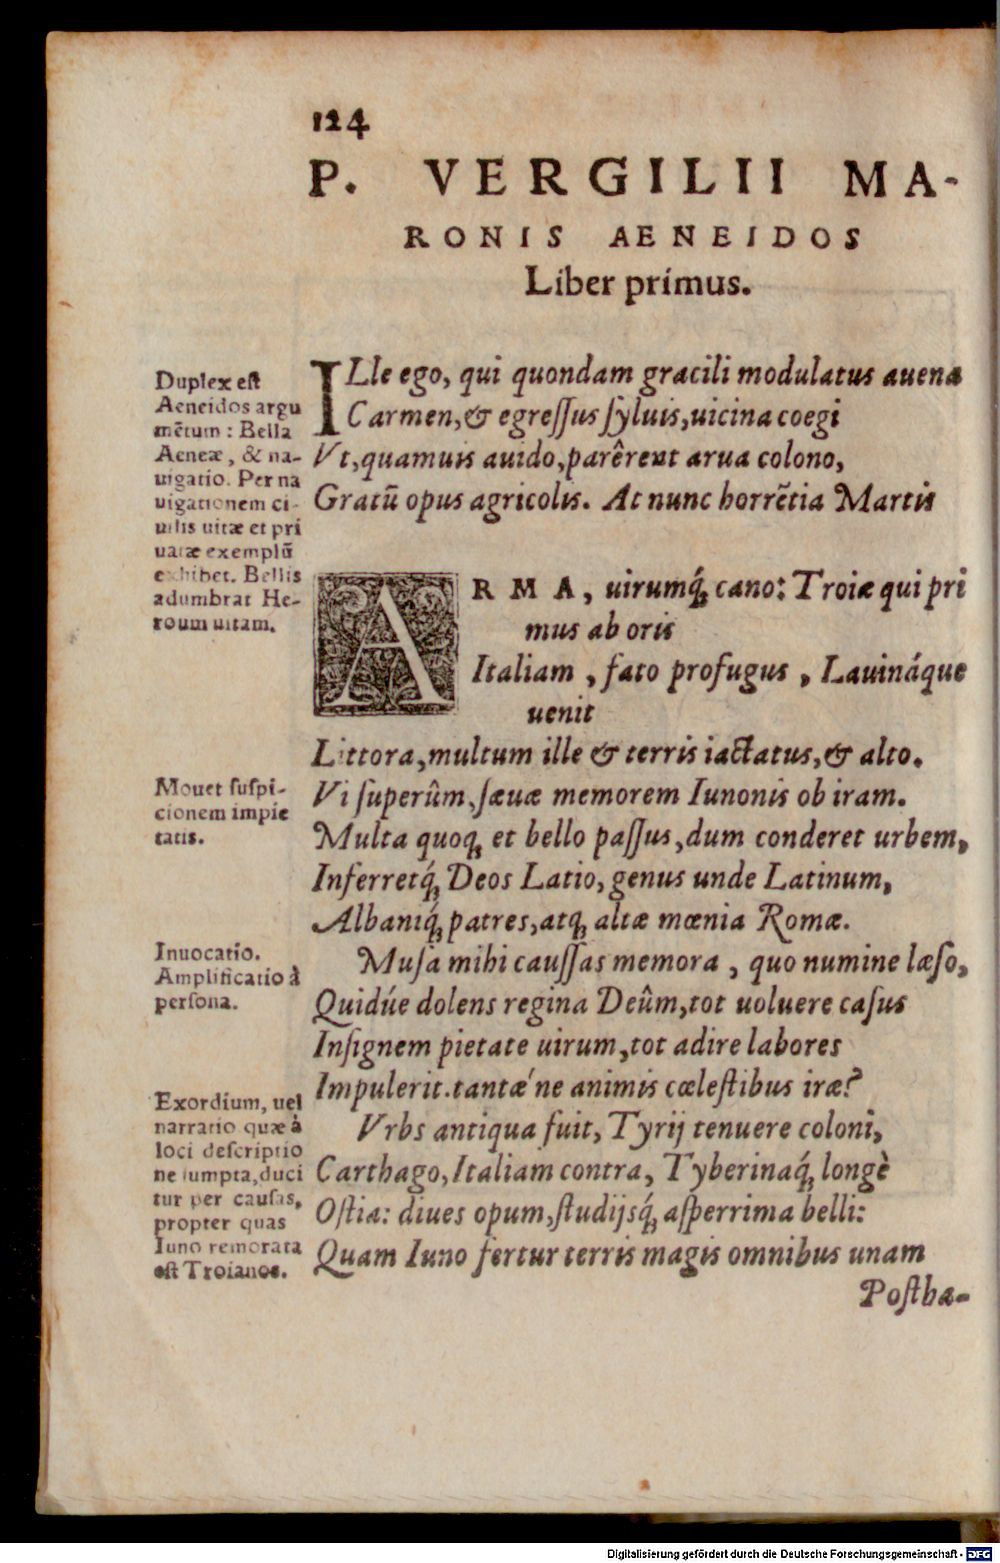 124
P. VERGILII MA-
RONIS AENEIDOS
Liber primus.
Duplex eſt
Aeneidos argu
mētum : Bella
Aeneæ, & na-
uigatio. Per na
uigationem ci-
uilis uitæ et pri
uatæ exemplū
exhibet. Bellis
adumbrat He-
roum uitam.
ILle ego, qui quondam gracili modulatus auena
Carmen, & egreſſus ſyluis, uicina coegi
Vt, quamuis auido, parêrent arua colono,
Gratū opus agricolis. At nunc horrētia Martis
ARMA, uirumq́; cano: Troiæ qui pri
mus ab oris
Italiam, fato profugus, Lauináque
uenit
Littora, multum ille & terris iactatus, & alto.
Mouet ſuſpi-
cionem impie
tatis.
Vi ſuperûm, ſæuæ memorem Iunonis ob iram.
Multa quoq; et bello paſſus, dum conderet urbem,
Inferretq́; Deos Latio, genus unde Latinum,
Albaniq́; patres, atq; altæ mœnia Romæ.
Inuocatio.
Amplificatio à
perſona.
Muſa mihi cauſſas memora, quo numine læſo,
Quidúe dolens regina Deûm, tot uoluere caſus
Inſignem pietate uirum, tot adire labores
Impulerit. tantæ'ne animis cœleſtibus iræ?
Exordium, uel
narratio quæ à
loci deſcriptio
ne ſumpta, duci
tur per cauſas,
propter quas
Iuno remorata
eſt Troianos.
Vrbs antiqua fuit, Tyrij tenuere coloni,
Carthago, Italiam contra, Tyberinaq́; longè
Oſtia: diues opum, ſtudijsq́; aſperrima belli:
Quam Iuno fertur terris magis omnibus unam
Poſtha-
Digitalisierung gefördert durch die Deutsche Forschungsgemeinschaft - DFG